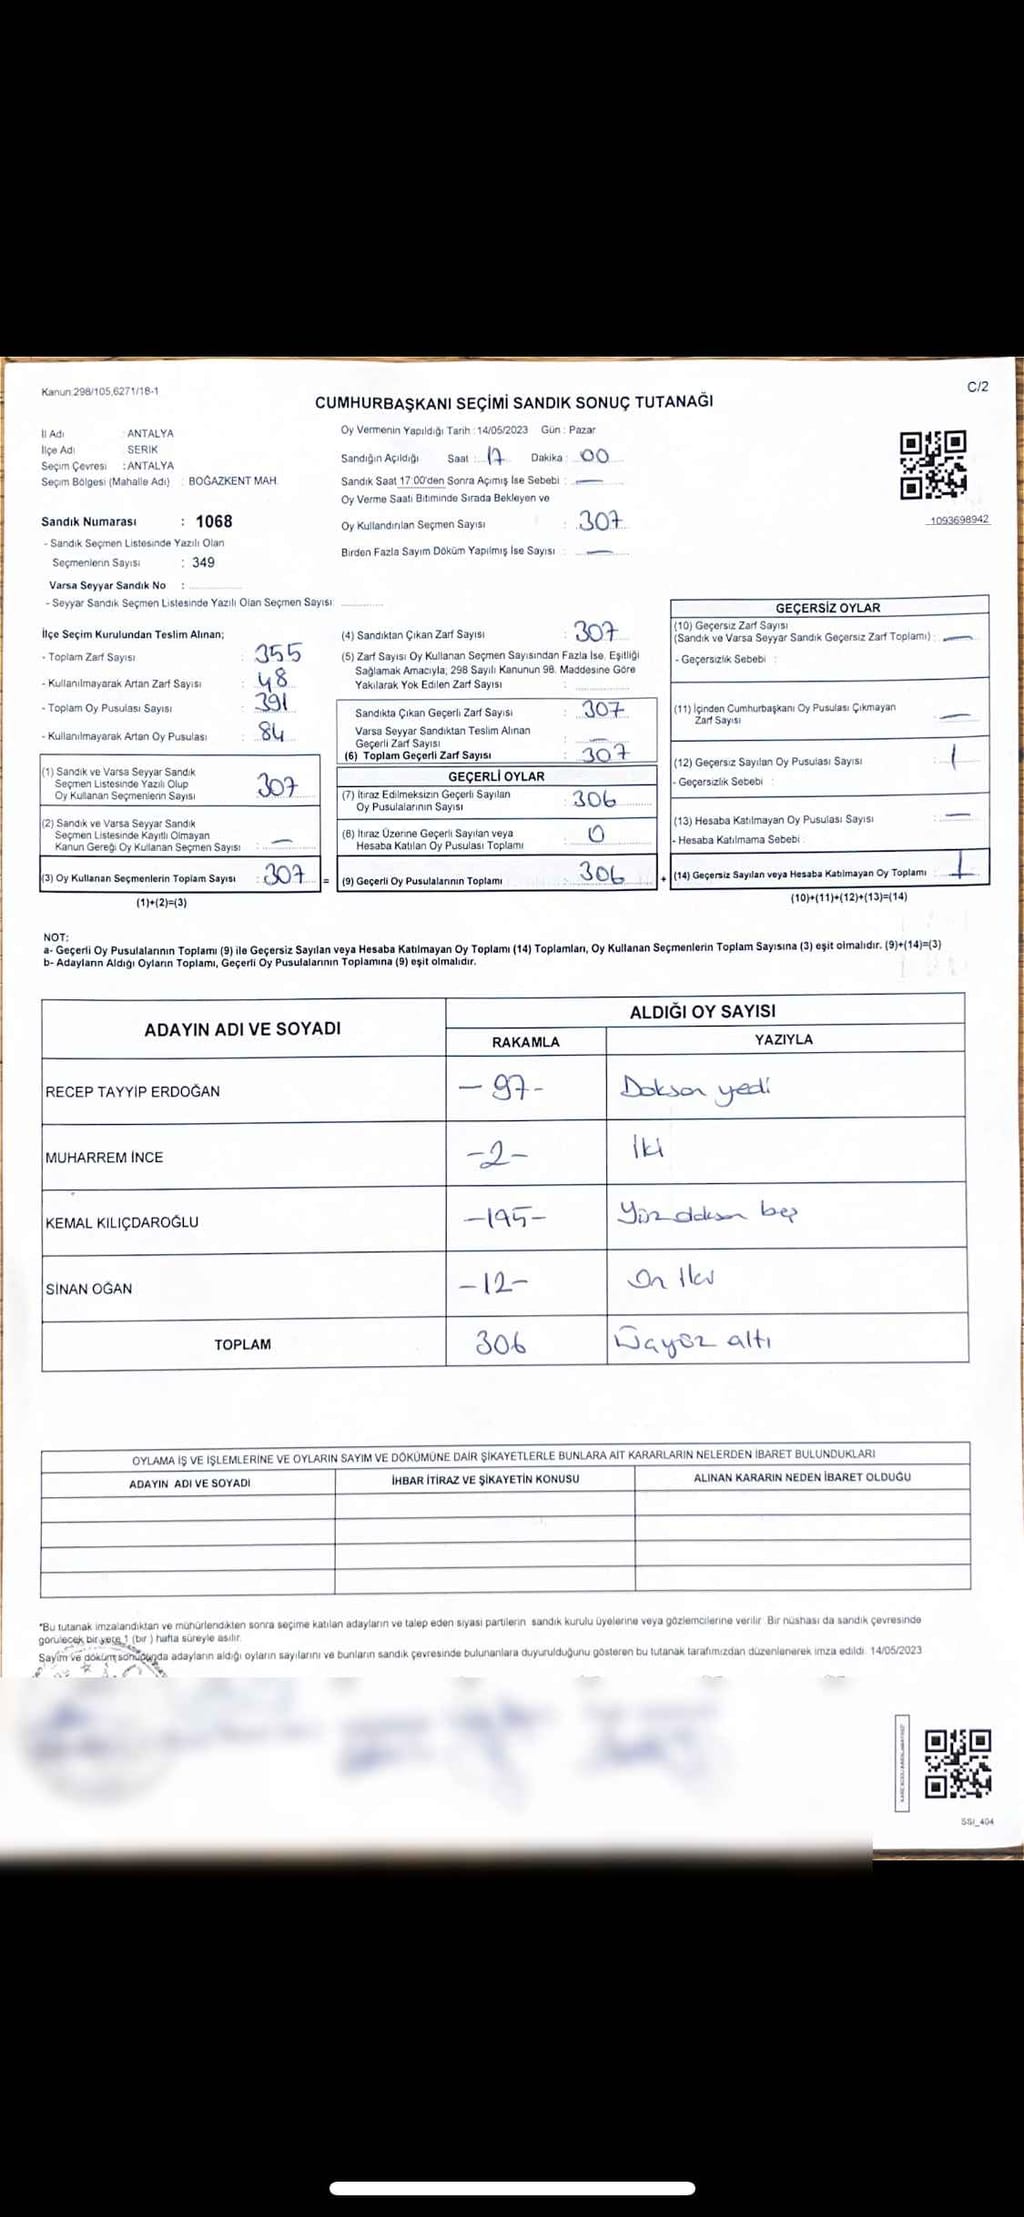 Kanun.298/105,6271/18-1
C/2
CUMHURBAŞKANI SEÇİMİ SANDIK SONUÇ TUTANAĞI
İl Adı : ANTALYA
İlçe Adı : SERİK
Seçim Çevresi : ANTALYA
Seçim Bölgesi (Mahalle Adı) : BOĞAZKENT MAH.
Sandık Numarası : 1068
- Sandık Seçmen Listesinde Yazılı Olan
Seçmenlerin Sayısı : 349
Varsa Seyyar Sandık No :
- Seyyar Sandık Seçmen Listesinde Yazılı Olan Seçmen Sayısı
Oy Vermenin Yapıldığı Tarih : 14/05/2023 Gün : Pazar
Sandığın Açıldığı Saat : 17 Dakika : 00
Sandık Saat 17:00'den Sonra Açımış İse Sebebi : —
Oy Verme Saati Bitiminde Sırada Bekleyen ve
Oy Kullandırılan Seçmen Sayısı : 307
Birden Fazla Sayım Döküm Yapılmış İse Sayısı : —
1093698942
İlçe Seçim Kurulundan Teslim Alınan;
- Toplam Zarf Sayısı : 355
- Kullanılmayarak Artan Zarf Sayısı : 48
- Toplam Oy Pusulası Sayısı : 391
- Kullanılmayarak Artan Oy Pusulası : 84
(1) Sandık ve Varsa Seyyar Sandık
Seçmen Listesinde Yazılı Olup
Oy Kullanan Seçmenlerin Sayısı : 307
(2) Sandık ve Varsa Seyyar Sandık
Seçmen Listesinde Kayıtlı Olmayan
Kanun Gereği Oy Kullanan Seçmen Sayısı : —
(3) Oy Kullanan Seçmenlerin Toplam Sayısı : 307 =
(1)+(2)=(3)
(4) Sandıktan Çıkan Zarf Sayısı : 307
(5) Zarf Sayısı Oy Kullanan Seçmen Sayısından Fazla İse, Eşitliği
Sağlamak Amacıyla, 298 Sayılı Kanunun 98. Maddesine Göre
Yakılarak Yok Edilen Zarf Sayısı :
Sandıkta Çıkan Geçerli Zarf Sayısı : 307
Varsa Seyyar Sandıktan Teslim Alınan
Geçerli Zarf Sayısı : —
(6) Toplam Geçerli Zarf Sayısı : 307
GEÇERLİ OYLAR
(7) İtiraz Edilmeksizin Geçerli Sayılan
Oy Pusulalarının Sayısı : 306
(8) İtiraz Üzerine Geçerli Sayılan veya
Hesaba Katılan Oy Pusulası Toplamı : 0
(9) Geçerli Oy Pusulalarının Toplamı : 306 +
GEÇERSİZ OYLAR
(10) Geçersiz Zarf Sayısı
(Sandık ve Varsa Seyyar Sandık Geçersiz Zarf Toplamı) : —
- Geçersizlik Sebebi :
(11) İçinden Cumhurbaşkanı Oy Pusulası Çıkmayan
Zarf Sayısı : —
(12) Geçersiz Sayılan Oy Pusulası Sayısı : 1
- Geçersizlik Sebebi :
(13) Hesaba Katılmayan Oy Pusulası Sayısı : —
- Hesaba Katılmama Sebebi :
(14) Geçersiz Sayılan veya Hesaba Katılmayan Oy Toplamı : 1
(10)+(11)+(12)+(13)=(14)
NOT:
a- Geçerli Oy Pusulalarının Toplamı (9) ile Geçersiz Sayılan veya Hesaba Katılmayan Oy Toplamı (14) Toplamları, Oy Kullanan Seçmenlerin Toplam Sayısına (3) eşit olmalıdır. (9)+(14)=(3)
b- Adayların Aldığı Oyların Toplamı, Geçerli Oy Pusulalarının Toplamına (9) eşit olmalıdır.
ADAYIN ADI VE SOYADI
ALDIĞI OY SAYISI
RAKAMLA YAZIYLA
RECEP TAYYİP ERDOĞAN -97- Doksan yedi
MUHARREM İNCE -2- İki
KEMAL KILIÇDAROĞLU -195- Yüz doksan beş
SİNAN OĞAN -12- On iki
TOPLAM 306 Üçyüz altı
OYLAMA İŞ VE İŞLEMLERİNE VE OYLARIN SAYIM VE DÖKÜMÜNE DAİR ŞİKAYETLERLE BUNLARA AİT KARARLARIN NELERDEN İBARET BULUNDUKLARI
ADAYIN ADI VE SOYADI İHBAR İTİRAZ VE ŞİKAYETİN KONUSU ALINAN KARARIN NEDEN İBARET OLDUĞU
*Bu tutanak imzalandıktan ve mühürlendikten sonra seçime katılan adayların ve talep eden siyasi partilerin sandık kurulu üyelerine veya gözlemcilerine verilir. Bir nüshası da sandık çevresinde
görülecek bir yere 1 (bir ) hafta süreyle asılır.
Sayım ve döküm sonucunda adayların aldığı oyların sayılarını ve bunların sandık çevresinde bulunanlara duyurulduğunu gösteren bu tutanak tarafımızdan düzenlenerek imza edildi. 14/05/2023
SSI_404